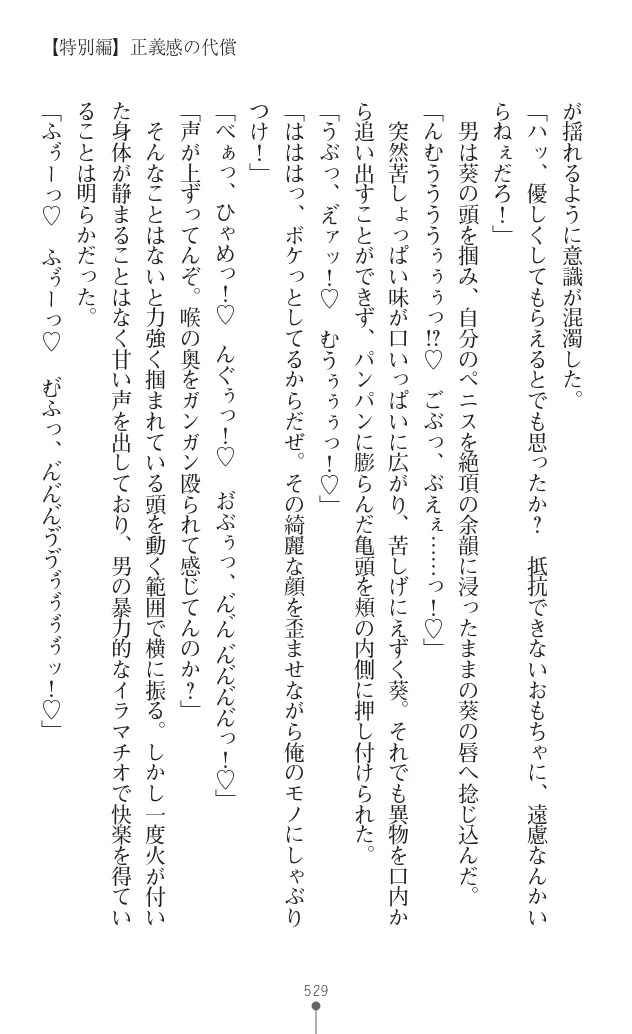 【特別編】正義感の代償
が揺れるように意識が混濁した。
「ハッ、優しくしてもらえるとでも思ったか？　抵抗できないおもちゃに、遠慮なんかい
らねぇだろ！」
　男は葵の頭を掴み、自分のペニスを絶頂の余韻に浸ったままの葵の唇へ捻じ込んだ。
「んむうううぅぅぅっ!?♡　ごぶっ、ぶえぇ……っ！♡」
　突然苦しょっぱい味が口いっぱいに広がり、苦しげにえずく葵。それでも異物を口内か
ら追い出すことができず、パンパンに膨らんだ亀頭を頬の内側に押し付けられた。
「うぶっ、え゛ァッ！♡　むうぅぅぅっ！♡」
「はははっ、ボケっとしてるからだぜ。その綺麗な顔を歪ませながら俺のモノにしゃぶり
つけ！」
「べぁっ、ひゃめっ！♡　んぐぅっ！♡　お゛ぶぅっ、ん゛ん゛ん゛ん゛ん゛ん゛っ！♡」
「声が上ずってんぞ。喉の奥をガンガン殴られて感じてんのか？」
　そんなことはないと力強く掴まれている頭を動く範囲で横に振る。しかし一度火が付い
た身体が静まることはなく甘い声を出しており、男の暴力的なイラマチオで快楽を得てい
ることは明らかだった。
「ふぅ゛ーっ♡　ふぅ゛ーっ♡　む゛ふっ、ん゛ん゛ん゛ゔゔぅ゛ぅ゛ぅ゛ぅ゛ッ！♡」
529